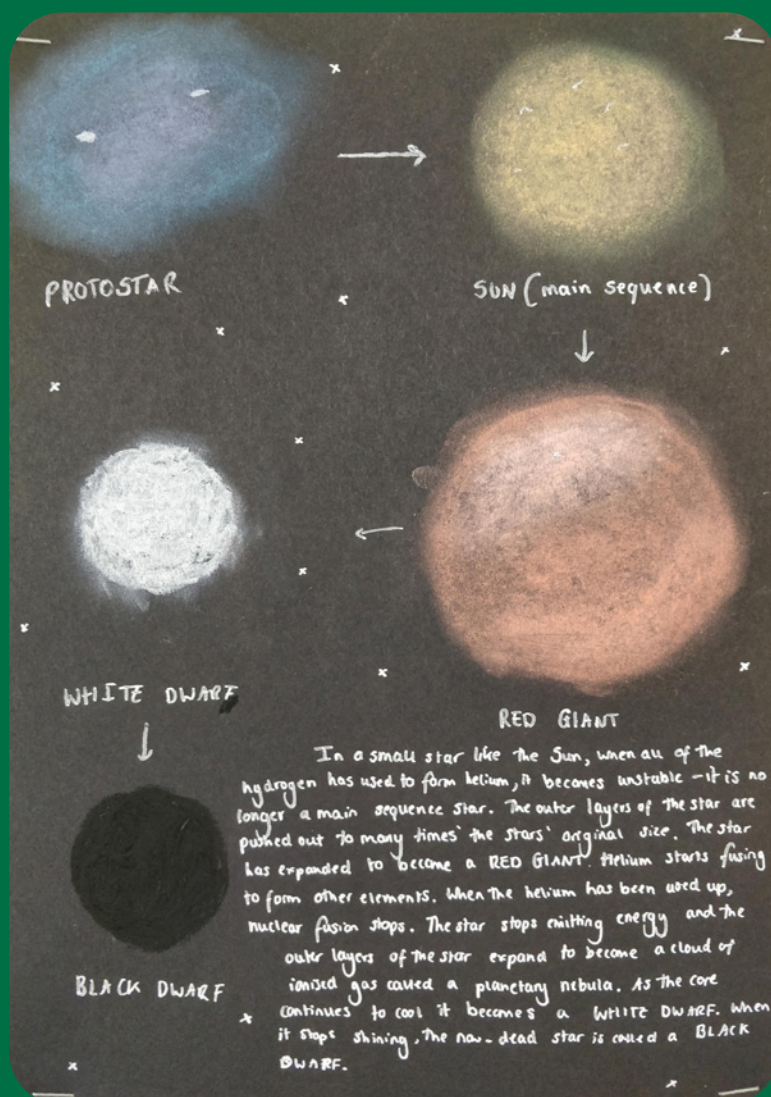 PROTOSTAR
SUN (main sequence)
WHITE DWARF
RED GIANT
In a small star like the Sun, when all of the
hydrogen has used to form helium, it becomes unstable - it is no
longer a main sequence star. The outer layers of the star are
pushed out to many times' the stars' original size. The star
has expanded to become a RED GIANT. Helium starts fusing
to form other elements. When the helium has been used up,
nuclear fusion stops. The star stops emitting energy and the
outer layers of the star expand to become a cloud of
ionised gas called a planetary nebula. As the core
continues to cool it becomes a WHITE DWARF. When
it stops shining, the now-dead star is called a BLACK
DWARF.
BLACK DWARF